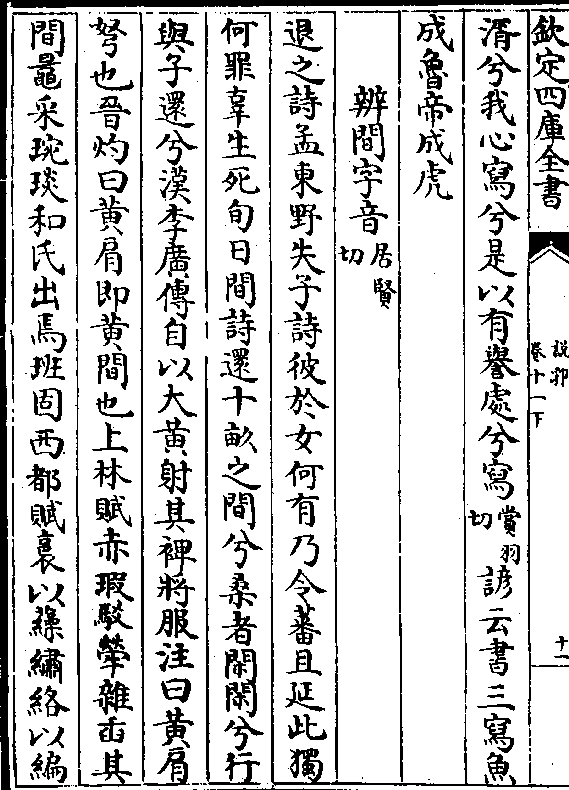 欽定四庫全書
說郛
卷十一下
十一
湑兮我心寫兮是以有譽處兮寫賞羽切諺云書三寫魚
成魯帝成虎
辨間字音居賢切
退之詩孟東野失子詩彼於女何有乃令蕃且延此獨
何罪辜生死旬日間詩還十畝之間兮桑者閑閑兮行
與子還兮漢李廣傳自以大黃射其裨將服注曰黃肩
弩也晉灼曰黃肩即黃間也上林賦赤瑕駁犖雜臿其
間鼂采琬琰和氏出焉班固西都賦裛以藻繡絡以編